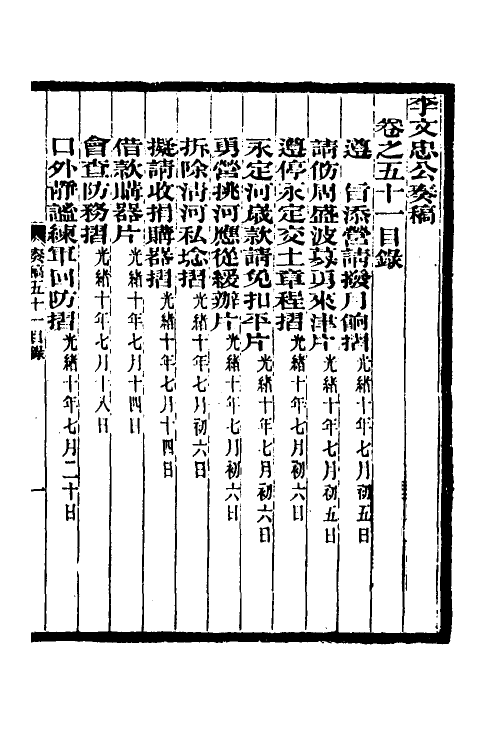 李文忠公奏稿
卷之五十一目錄
遵 旨添營請撥月餉摺光緒十年七月初五日
請飭周盛波募勇來津片光緒十年七月初五日
遵停永定交土章程摺光緒十年七月初六日
永定河歲款請免扣平片光緒十年七月初六日
勇營挑河應從緩辦片光緒十年七月初六日
拆除清河私埝摺光緒十年七月初六日
擬請收捐購器摺光緒十年七月十四日
借款購器片光緒十年七月十四日
會查防務摺光緒十年七月十八日
口外靜謐練軍回防摺光緒十年七月二十日
奏稿五十一目錄 一